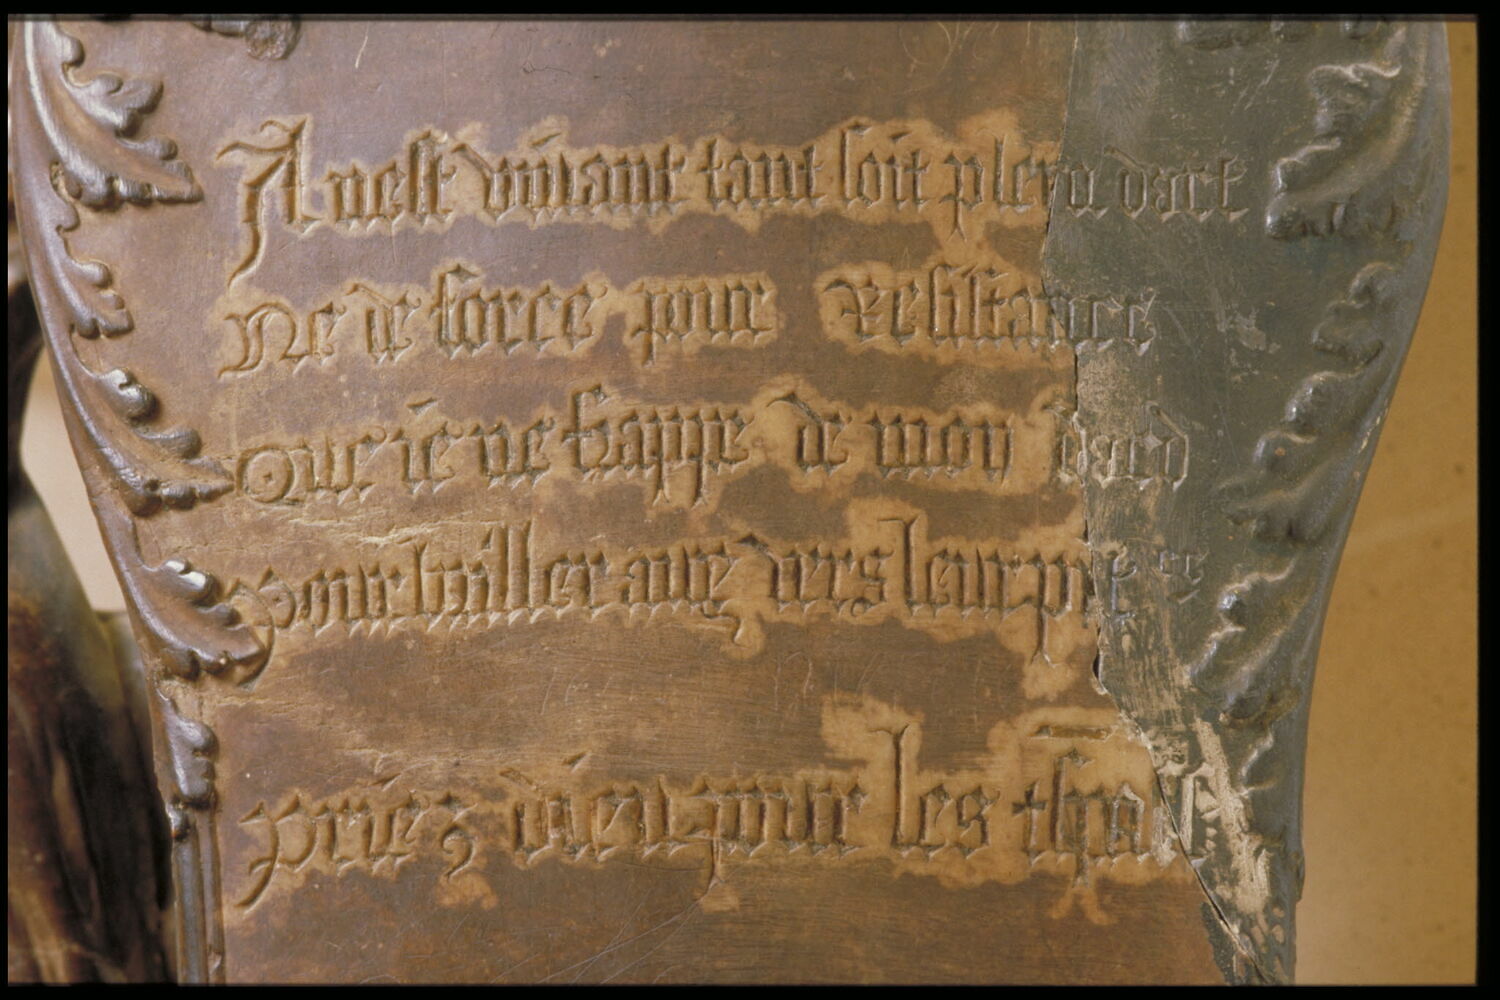 Il nest viuant tant soit plein dart
Ne de force pour Resistance
Que ie ne frappe de mon dard
pour bailler aux vers leur pitance
priez dieu pour les